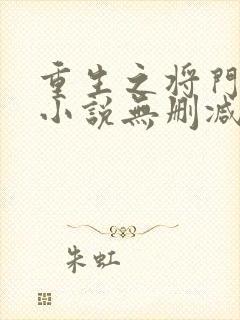 重生之将門
小説無删减
朱虹